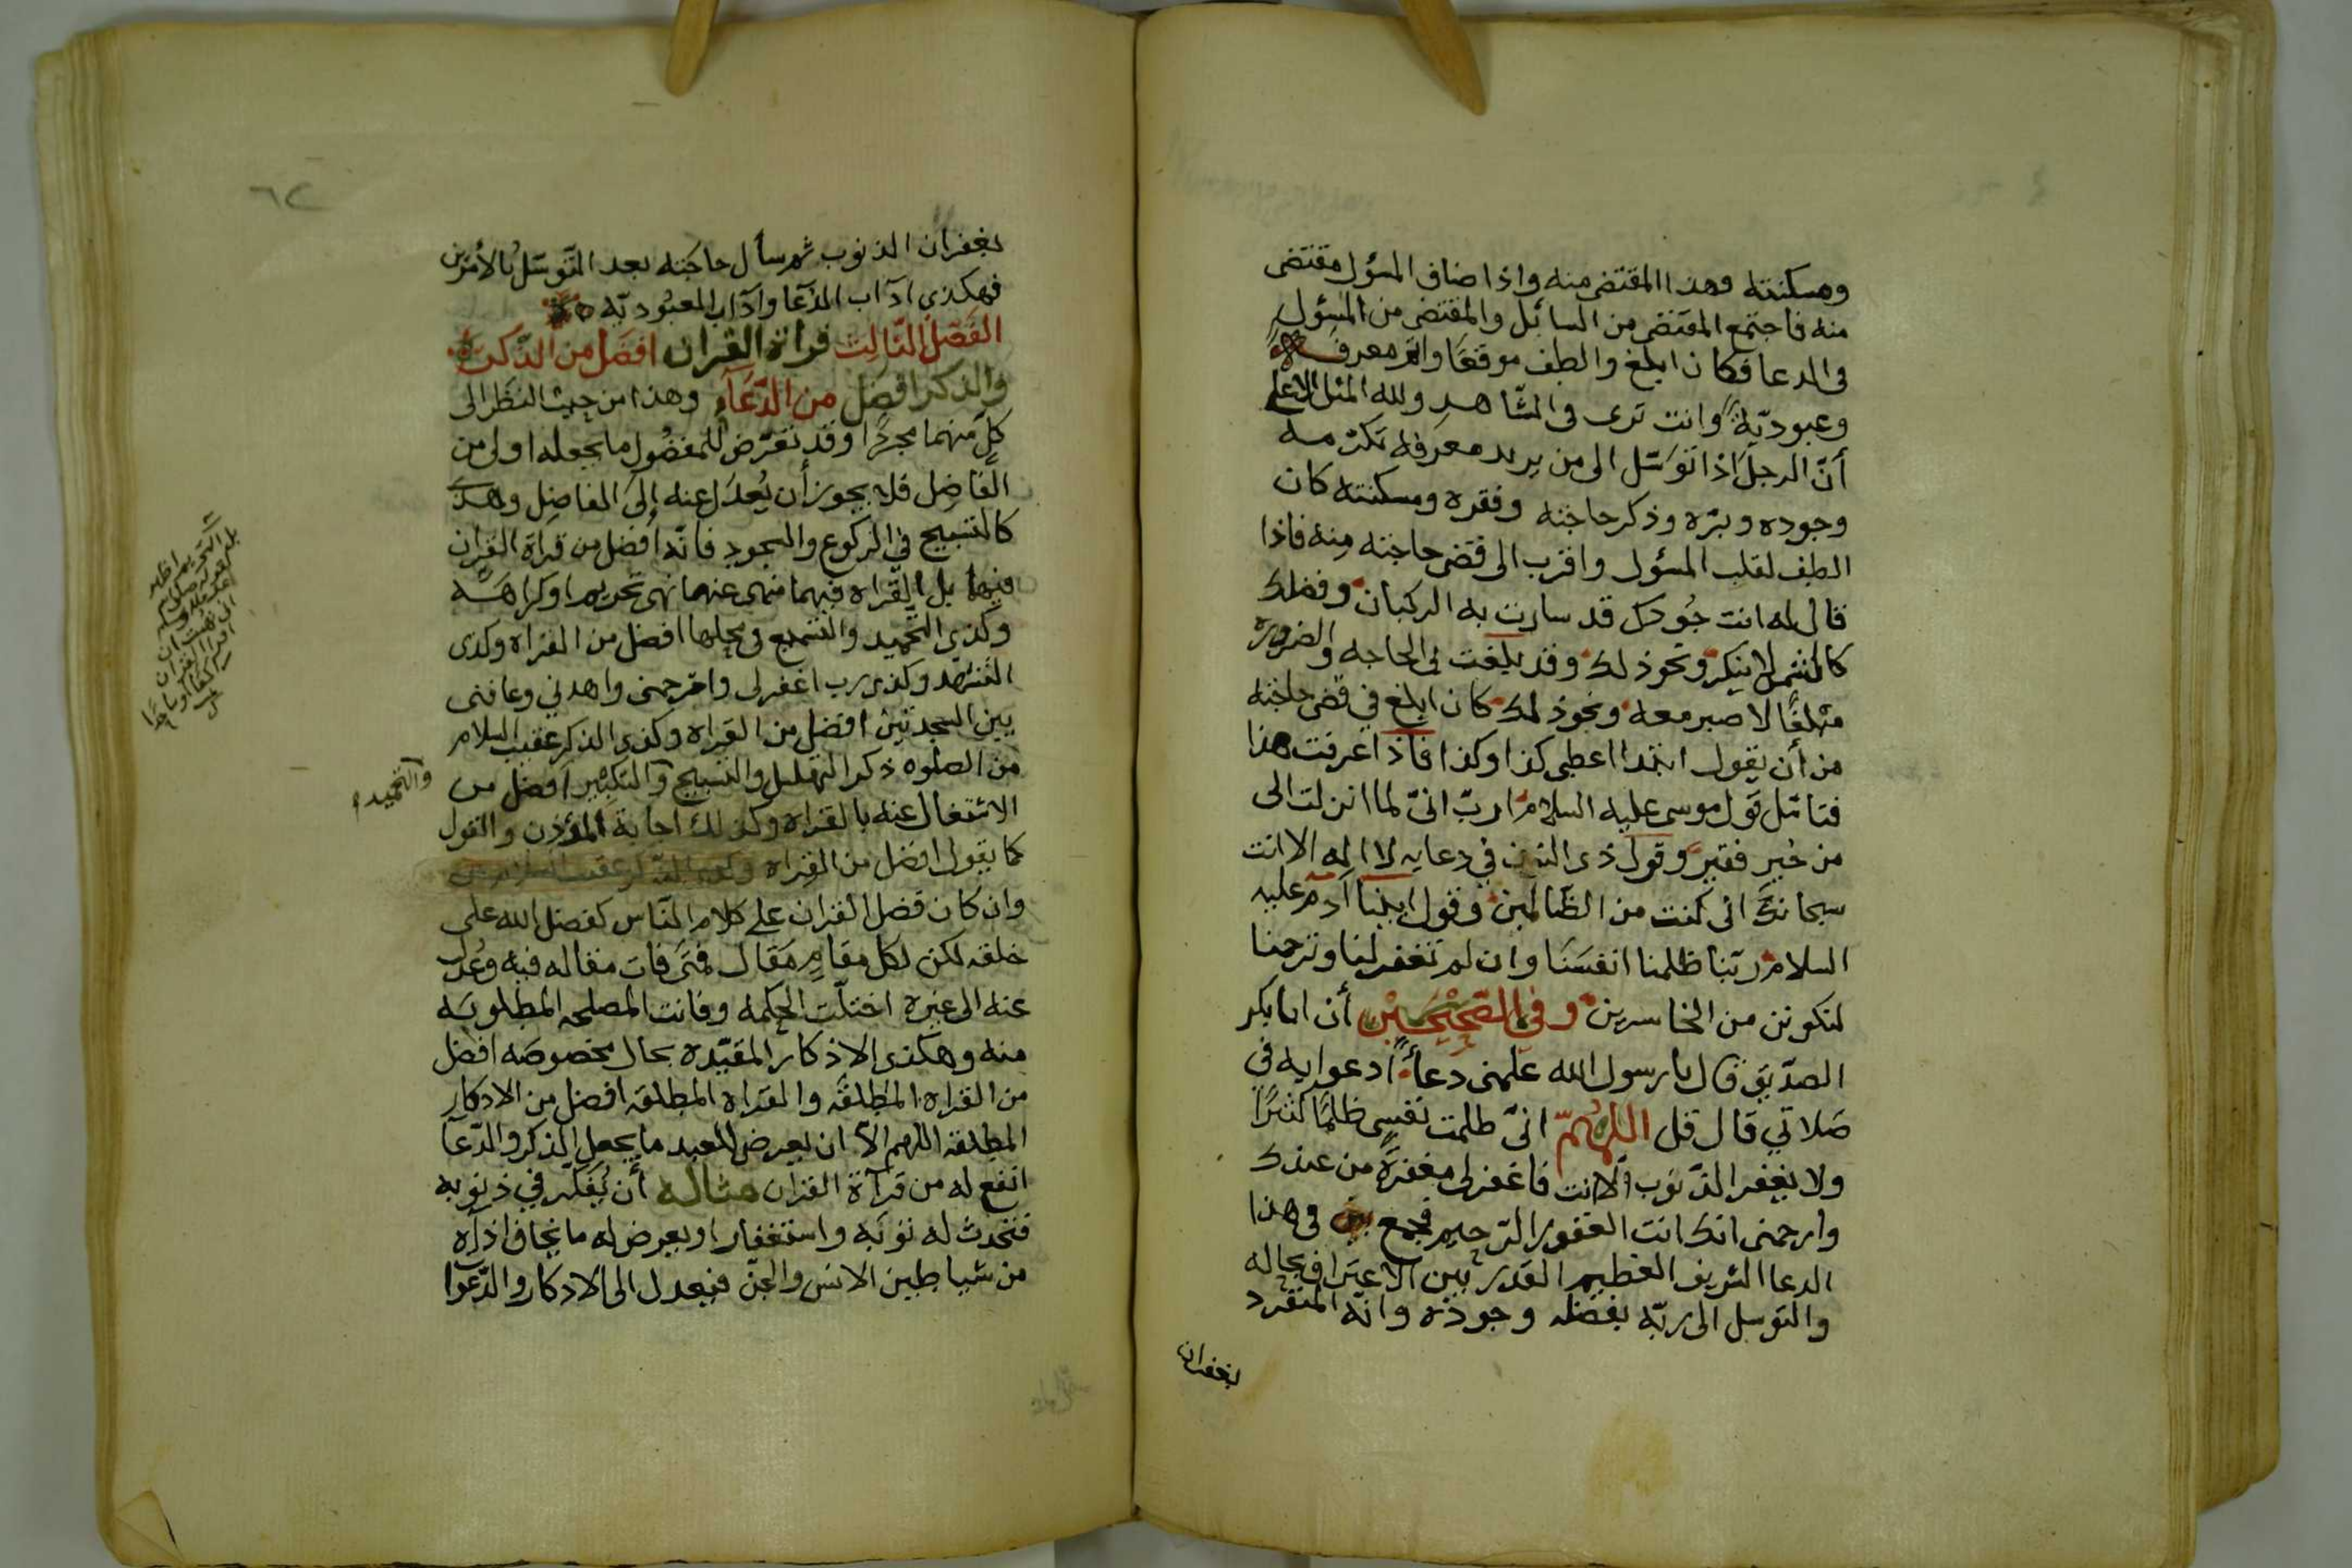 ومسكنته وهذا المقتضى منه واذا ضاف المسؤل مقتضى
منه فاجتمع المقتضى من السائل والمقتضى من المسؤل
فى الدعا فكان ابلغ والطف موقعًا واتم معرفة
وعبوديّة وانت ترى فى المشاهد ولله المثل الاعلى
أنّ الرجل اذا توسّل الى من يريد معرفه بكرمه
وجوده وبرّه وذكر حاجته وفقره ومسكنته كان
الطف لقلب المسؤل واقرب الى قضى حاجته منه فاذا
قال له انت جُودك قد سارت به الركبان وفضلك
كالشمس لا ينكر ونحو ذلك وقد بلغت بى الحاجه والضروره
مبلغًا لا صبر معه ونحو ذلك كان ابلغ في قضى حاجته
من أن يقول ابتدا اعطى كذا وكذا فاذا عرفت هذا
فتامّل قول موسى عليه السلام رب انىّ لما انزلت الى
من خير فقير وقول ذى النون في دعايه لا اله الا انت
سبحانك انى كنت من الظالمين وقول ابينا آدم عليه
السلام ربّنا ظلمنا انفسنا وان لم تغفر لنا وترحمنا
لنكونن من الخاسرين وفى الصّحيحين أن ابا بكر
الصدّيق قال يا رسول الله علمنى دعاءً ادعوا به في
صَلاتي قال قل اللهُمّ انىّ ظلمت نفسى ظلمًا كثيرًا
ولا يغفر الذّنوب الا انت فاغفرلى مغفرةً من عندك
وارحمنى انك انت الغفور الرّحيم فجمع فى هذا
الدعا الشريف العظيم القدر بين الاعتراف بحاله
والتوسل الى ربّه بفضله وجوده وانّه المنفرد
بغفران
٦٢
بغفران الذنوب ثم سأل حاجته بعد التّوسّل بالأمرين
فهكذى آداب الدّعا وآداب المعبُوديّه
الفَصْل الثالث قراءة القران افضَل من الذّكر
والذكر افضَل من الدّعَاء وهذا من حيث النظَر الى
كلّ منهما مجردًا وقد تعرّض للمفضُول ما يجعله اولى من
الفَاضِل فلا يجوز أن يُعدَل عنه إلى الفاضِل وهذَى
كالتسبيح فِي الركوع والسجود فانّه أفضل من قراة القران
فيهما بل القراه فيهما منهى عنهما نهى تحريم او كراهَه
وكذى التّحميد والتسميع فى محلها افضل من القراه وكذى
التّشهّد وكذى رب اغفرلى وارحمنى واهدني وعافنى
بين السجدتين افضل من القراه وكذى الذكر عقيب السلام
من الصلوه ذكر التهليل والتسبيح والتكبير افضل من
والتحميد
الاشتغال عنه بالقراه وكذلك اجابة المؤذن والقول
كما يقول افضل من القراه
وان كان فضل القران على كلام النّاس كفضل الله على
خلقه لكن لكل مقامٍ مَقال فمتَى فات مقاله فيه وعُدل
عنه الى غيره اختلّت الحكمه وفاتت المصلحه المطلوبَه
منه وهكذى الاذكار المقيّده بحال مخصوصَه افضل
من القراه المطلقَه والقراه المطلقه افضل من الاذكار
المطلقه اللهم الاّ ان يعرض للعبد ما يجعل الذكر والدّعآ
انفع له من قرآة القران مثاله أن يُفكّر في ذنوبه
فتحدث له توبَه واستغفارا ويعرض له ما يخاف اذاه
من شياطين الانس والجنّ فيعدل الى الاذكار والدّعوا